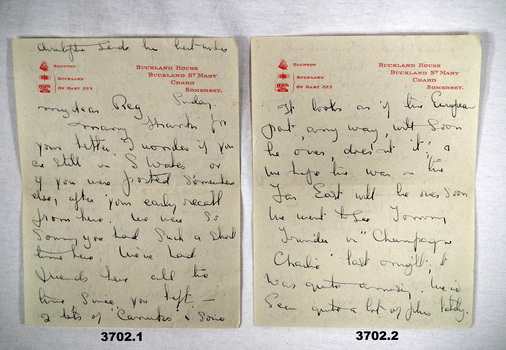 sends his best wishes
TAUNTON
BUCKLAND
ST MARY 223
BUCKLAND HOUSE
BUCKLAND ST MARY
CHARD
SOMERSET.
Sunday.
my dear Reg
many thanks for
your letter. I wonder if you
are still in S Wales or
if you were posted somewhere
else, after your early recall
from here. We were so
sorry you had such a short
time here. We've had
friends here all the
time since you left –
& lots of "Canutes" & some
3702.1
TAUNTON
BUCKLAND
ST MARY 223
BUCKLAND HOUSE
BUCKLAND ST MARY
CHARD
SOMERSET.
It looks as if this European
part, any way, will soon
be over, doesn't it, &
we hope the war in the
Far East will be over soon
We went to see Tommy
Trinder in "Champagne
Charlie" last night, it
was quite amusing. We've
seen quite a lot of John lately.
3702.2